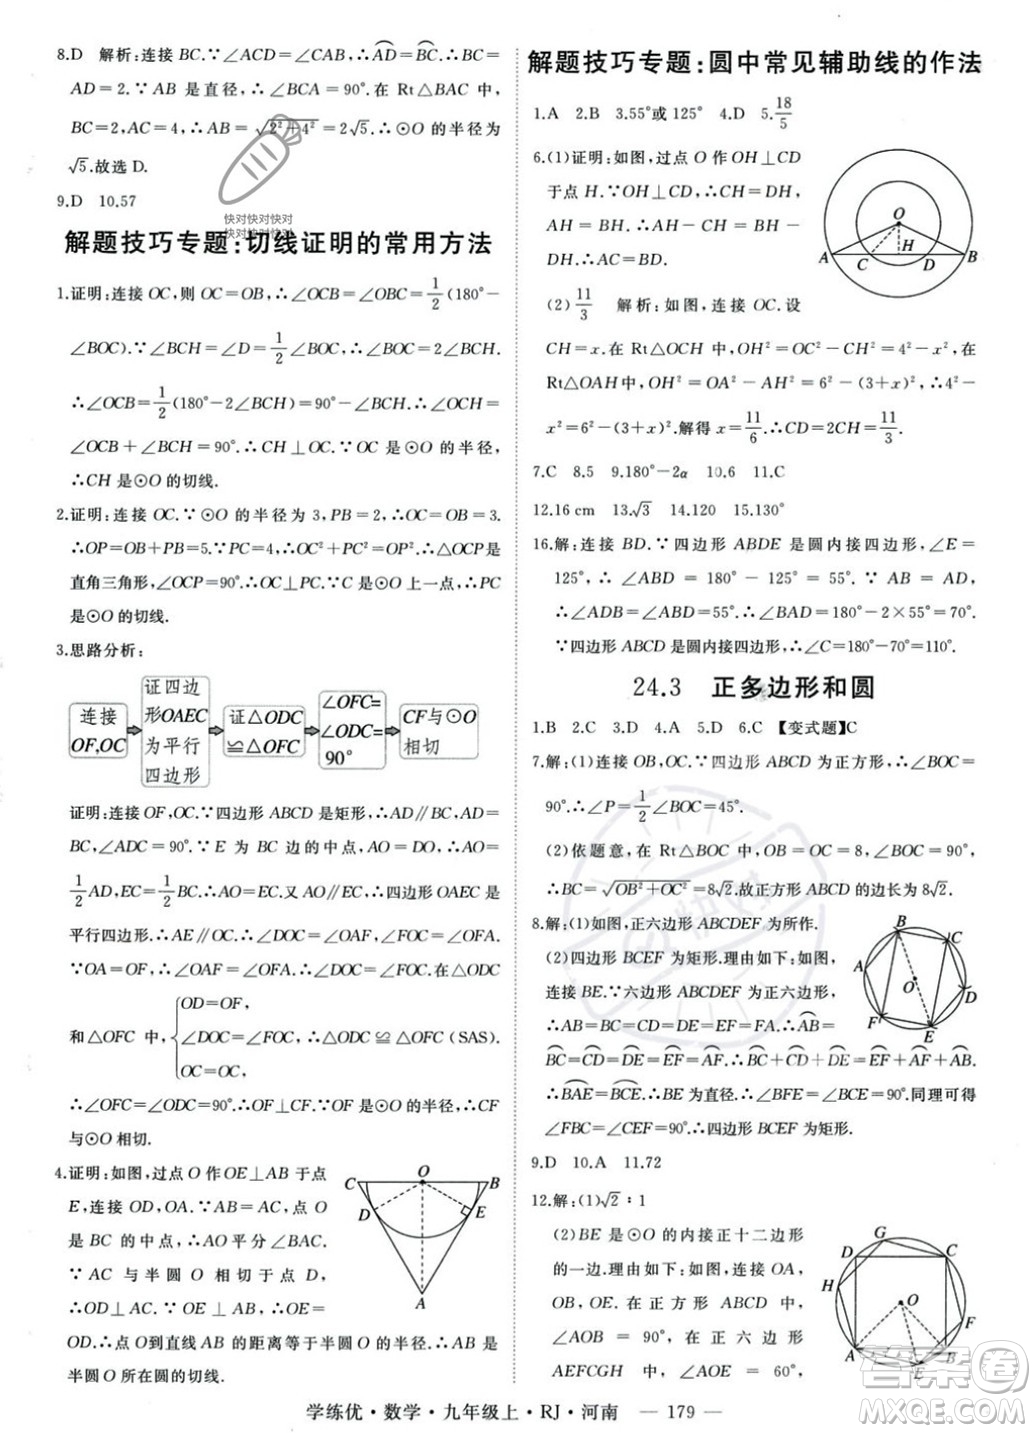 8.D 解析:连接 BC.∵∠ACD=∠CAB,∴⌒AD=⌒BC.∴BC=
AD=2.∵AB 是直径,∴∠BCA=90°.在 Rt△BAC 中,
BC=2,AC=4,∴AB=√(2²+4²)=2√5.∴⊙O 的半径为
√5.故选D.
9.D 10.57
快对快对快对
快对快对快对
解题技巧专题:切线证明的常用方法
1.证明:连接 OC,则 OC=OB,∴∠OCB=∠OBC=1/2(180°-
∠BOC).∵∠BCH=∠D=1/2∠BOC,∴∠BOC=2∠BCH.
∴∠OCB=1/2(180°-2∠BCH)=90°-∠BCH.∴∠OCH=
∠OCB+∠BCH=90°.∴CH⊥OC.∵OC 为⊙O 的半径,
∴CH 是⊙O 的切线.
2.证明:连接 OC.∵⊙O 的半径为 3,PB=2,∴OC=OB=3.
∴OP=OB+PB=5.∵PC=4,∴OC²+PC²=OP².∴△OCP是
直角三角形,∠OCP=90°.∴OC⊥PC.∵C是⊙O上一点,∴PC
是⊙O的切线.
3.思路分析:
连接 OF,OC
证四边形OAEC为平行四边形
证△ODC≌△OFC
∠OFC=∠ODC=90°
CF与⊙O相切
证明:连接 OF,OC.∵四边形 ABCD 是矩形,∴AD∥BC,AD=
BC,∠ADC=90°.∵E 为 BC 边的中点,AO=DO,∴AO=
1/2AD,EC=1/2BC.∴AO=EC.又AO∥EC,∴四边形 OAEC 是
平行四边形.∴AE∥OC.∴∠DOC=∠OAF,∠FOC=∠OFA.
∵OA=OF,∴∠OAF=∠OFA.∴∠DOC=∠FOC.在△ODC
和△OFC 中,{OD=OF,
∠DOC=∠FOC,∴△ODC≌△OFC(SAS).
OC=OC,
∴∠OFC=∠ODC=90°.∴OF⊥CF.∵OF为⊙O的半径,∴CF
与⊙O 相切.
4.证明:如图,过点 O 作 OE⊥AB 于点
E,连接 OD,OA.∵AB=AC,点 O
是 BC 的中点,∴AO平分∠BAC.
∵AC 与半圆 O 相切于点 D,
∴OD⊥AC.∵OE⊥AB,∴OE=
OD.∴点 O到直线 AB 的距离等于半圆 O 的半径.∴AB 是
半圆 O所在圆的切线.
C O B
D E
A
解题技巧专题:圆中常见辅助线的作法
1.A 2.B 3.55°或125° 4.D 5.18/5
6.(1)证明:如图,过点 O 作 OH⊥CD
于点 H.∵OH⊥CD,∴CH=DH,
AH=BH.∴AH-CH=BH-
DH.∴AC=BD.
O
A C H D B
(2) 11/3 解析:如图,连接 OC.设
CH=x.在 Rt△OCH 中,OH²=OC²-CH²=4²-x²,在
Rt△OAH中,OH²=OA²-AH²=6²-(3+x)²,∴4²-
x²=6²-(3+x)².解得 x=11/6.∴CD=2CH=11/3.
7.C 8.5 9.180°-2α 10.6 11.C
12.16 cm 13.√3 14.120 15.130°
16.解:连接 BD.∵四边形 ABDE 是圆内接四边形,∠E=
125°,∴∠ABD=180°-125°=55°.∵AB=AD,
∴∠ADB=∠ABD=55°.∴∠BAD=180°-2×55°=70°.
∵四边形 ABCD 是圆内接四边形,∴∠C=180°-70°=110°.
24.3 正多边形和圆
1.B 2.C 3.D 4.A 5.D 6.C 【变式题】C
7.解:(1)连接 OB,OC.∵四边形 ABCD 为正方形,∴∠BOC=
90°.∴∠P=1/2∠BOC=45°.
(2)依题意,在 Rt△BOC 中,OB=OC=8,∠BOC=90°,
∴BC=√(OB²+OC²)=8√2.故正方形 ABCD 的边长为8√2.
8.解:(1)如图,正六边形 ABCDEF 为所作.
(2)四边形 BCEF 为矩形.理由如下:如图,
连接 BE.∵六边形 ABCDEF 为正六边形,
∴AB=BC=CD=DE=EF=FA.∴⌒AB=
⌒BC=⌒CD=⌒DE=⌒EF=⌒AF.∴⌒BC+⌒CD+⌒DE=⌒EF+⌒AF+⌒AB.
∴⌒BAE=⌒BCE.∴BE 为直径.∴∠BFE=∠BCE=90°.同理可得
∠FBC=∠FEC=90°.∴四边形 BCEF 为矩形.
B C
A O D
F E
9.D 10.A 11.72
12.解:(1)√2∶1
(2)BE 是⊙O 的内接正十二边形
的一边.理由如下:如图,连接 OA,
OB,OE.在正方形 ABCD 中,
∠AOB = 90°,在正六边形
AEFCGH 中,∠AOE = 60°,
G
D C
H
O
F
A B
E
学练优·数学·九年级上·RJ·河南 — 179 —
答案卷